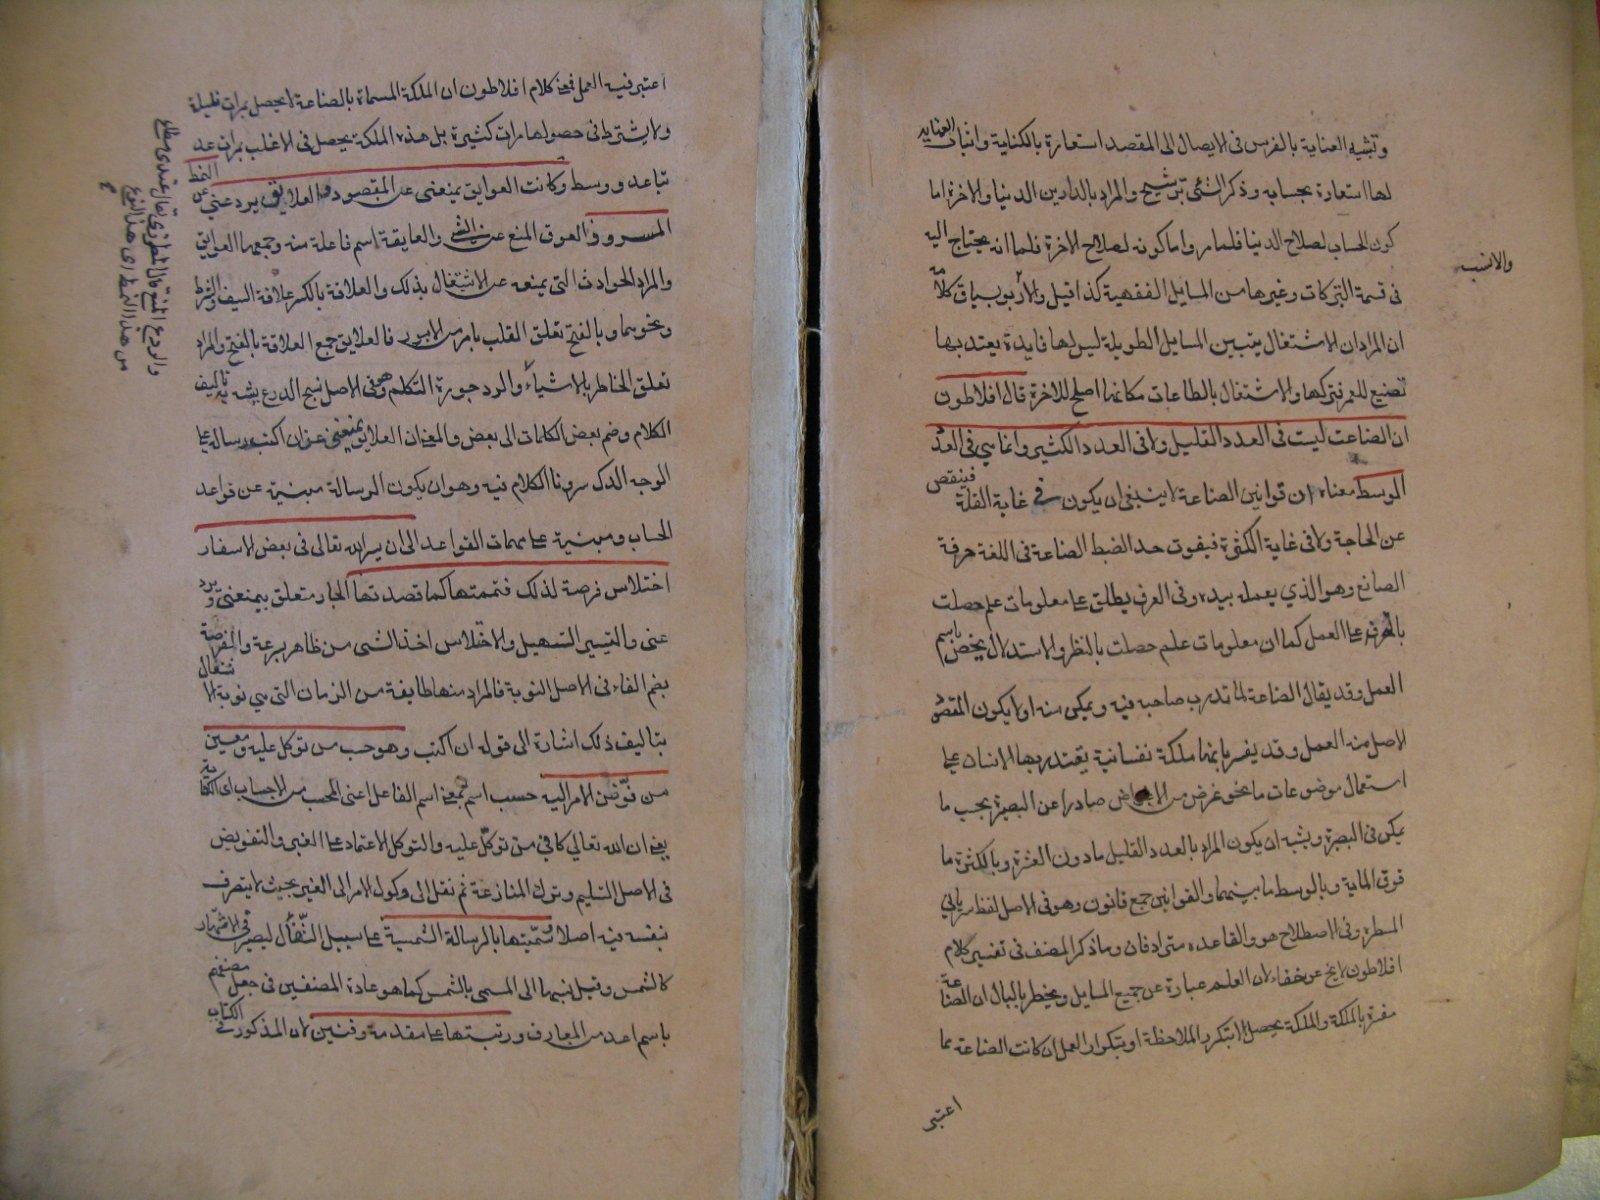 وتشبيه العناية بالفرس فى الايصال الى المقصد استعارة بالكناية واثبات العناية
لها استعارة بحسابه وذكر الشئ ترشيح والمراد بالدارين الدنيا والاخرة اما
كون الحساب لصلاح الدنيا فلما مر واما كونه لصلاح الاخرة فلما انه يحتاج اليه
فى قسمة التركات وغيرها من المسايل الفقهية كذا قيل والاربو بسياق كلامه
والانسب
ان المراد ان الاشتغال بتبين المسايل الطويلة ليس لها فايدة يعتد بها
تضيع للعمر فتركها والاشتغال بالطاعات مكانها اصلح للاخرة قال افلاطون
ان الصناعت ليت فى العدد القليل ولا فى العدد الكثير وانما هي فى العدد
الوسط معناه ان قوانين الصناعة لا ينبغى ان يكون فى غاية القلة فينقص
عن الحاجة ولا فى غاية الكثرة فيفوت حد الضبط الصناعة فى اللغة حرفة
الصانع وهو الذي يعمله بيده وفى العرف يطلق على معلومات علم حصلت
بالتمرن على العمل كما ان معلومات علم حصلت بالنظر والاستدلال يخص باسم
العمل وقد يقال الصناعة لما تدرب صاحبه فيه ويمكن منه او لا يكون المقصود
الاصل منه العمل وقد يفسر بانها ملكة نفسانية يقتدر بها الانسان على
استعمال موضوعات ما نحو غرض من الاغراض صادرا عن البصيرة بحب ما
يمكن فى البصيرة ويشبه ان يكون المراد بالعدد القليل ما دون العشرة وبالكثرة ما
فوق الماية وبالوسط ما بينهما والقوانين جمع قانون وهو فى الاصل لفظ سريانى
المسطرة وفى الاصطلاح هو والقاعدة مترادفان وما ذكر المصنف فى تفسير كلام
افلاطون لا يخ عن خفاء لان العلم عبارة عن جميع المسايل ويخطر بالبال ان الصناعة
مفسرة بالملكة والملكة يحصل الا بتكرر الملاحظة او بتكرار العمل ان كانت الصناعة مما
اعتبر
اعتبر فيه العمل فمعنى كلام افلاطون ان الملكة المسماة بالصناعة لا يحصل بمرات قليلة
ولا يشترط فى حصولها مرات كثيرة بل هذه الملكة يحصل فى الاغلب بمرات عد
تباعد ووسط وكانت العوايق يمنعنى عن المقصود والعلايق يردعنى عن النمط
المسرود العوق المنع عن الشئ والعايقة اسم فاعلة منه وجمعها العوايق
والمراد الحوادث التى يمنعه عن الاشتغال بذلك والعلاقة بالكسر علاقة السيف والسوط
ونحوهما وبالفتح تعلق القلب بامر من الامور فالعلايق جمع العلاقة بالفتح والمراد
تعلق الخاطر بالاشياء والرد جورة التكلم وهو فى الاصل نسج الدرع يشبه به تاليف
الكلام وضم بعض الكلمات الى بعض والمعنى ان العلايق يمنعنى عن ان اكتب رسالة على
الوجه الذى سردنا الكلام فيه وهو ان يكون الرسالة مبنية عن قواعد
الحساب ومبنية على مهمات القواعد الى ان يسر الله تعالى فى بعض الاسفار
اختلاس فرصة لذلك فتممتها كما قصدتها الجار متعلق بيمنعنى ويرد
عنى والتيسير التسهيل والاختلاس اخذ الشئ من ظاهر بسرعة والفرصة
بضم الفاء فى الاصل النوبة فالمراد منها طايفة من الزمان التى هي نوبة الاشتغال
بتاليف ذلك اشارة الى قوله ان اكتب وهو حسب من توكل عليه ومعين
من فوّض الامر اليه حسب اسم بمعنى اسم الفاعل اعنى المحسب من الاحساب اى الكفاية
يعنى ان الله تعالى كافى من توكل عليه والتوكل الاعتماد على الغير والتفويض
فى الاصل التسليم وترك المنازعة ثم نقل الى وكول الامر الى الغير بحيث لا يتصرف
بنفسه فيه اصلا وسمّيتها بالرسالة الشمسية على سبيل التفأل ليصير فى الاشتهار
كالشمس وقيل نسبها الى المسمى بالشمس كما هو عادة المصنفين فى جعل مصنفهم
باسم احد من المعارف ورتبتها على مقدمة وفنين لان المذكور فى الكتاب